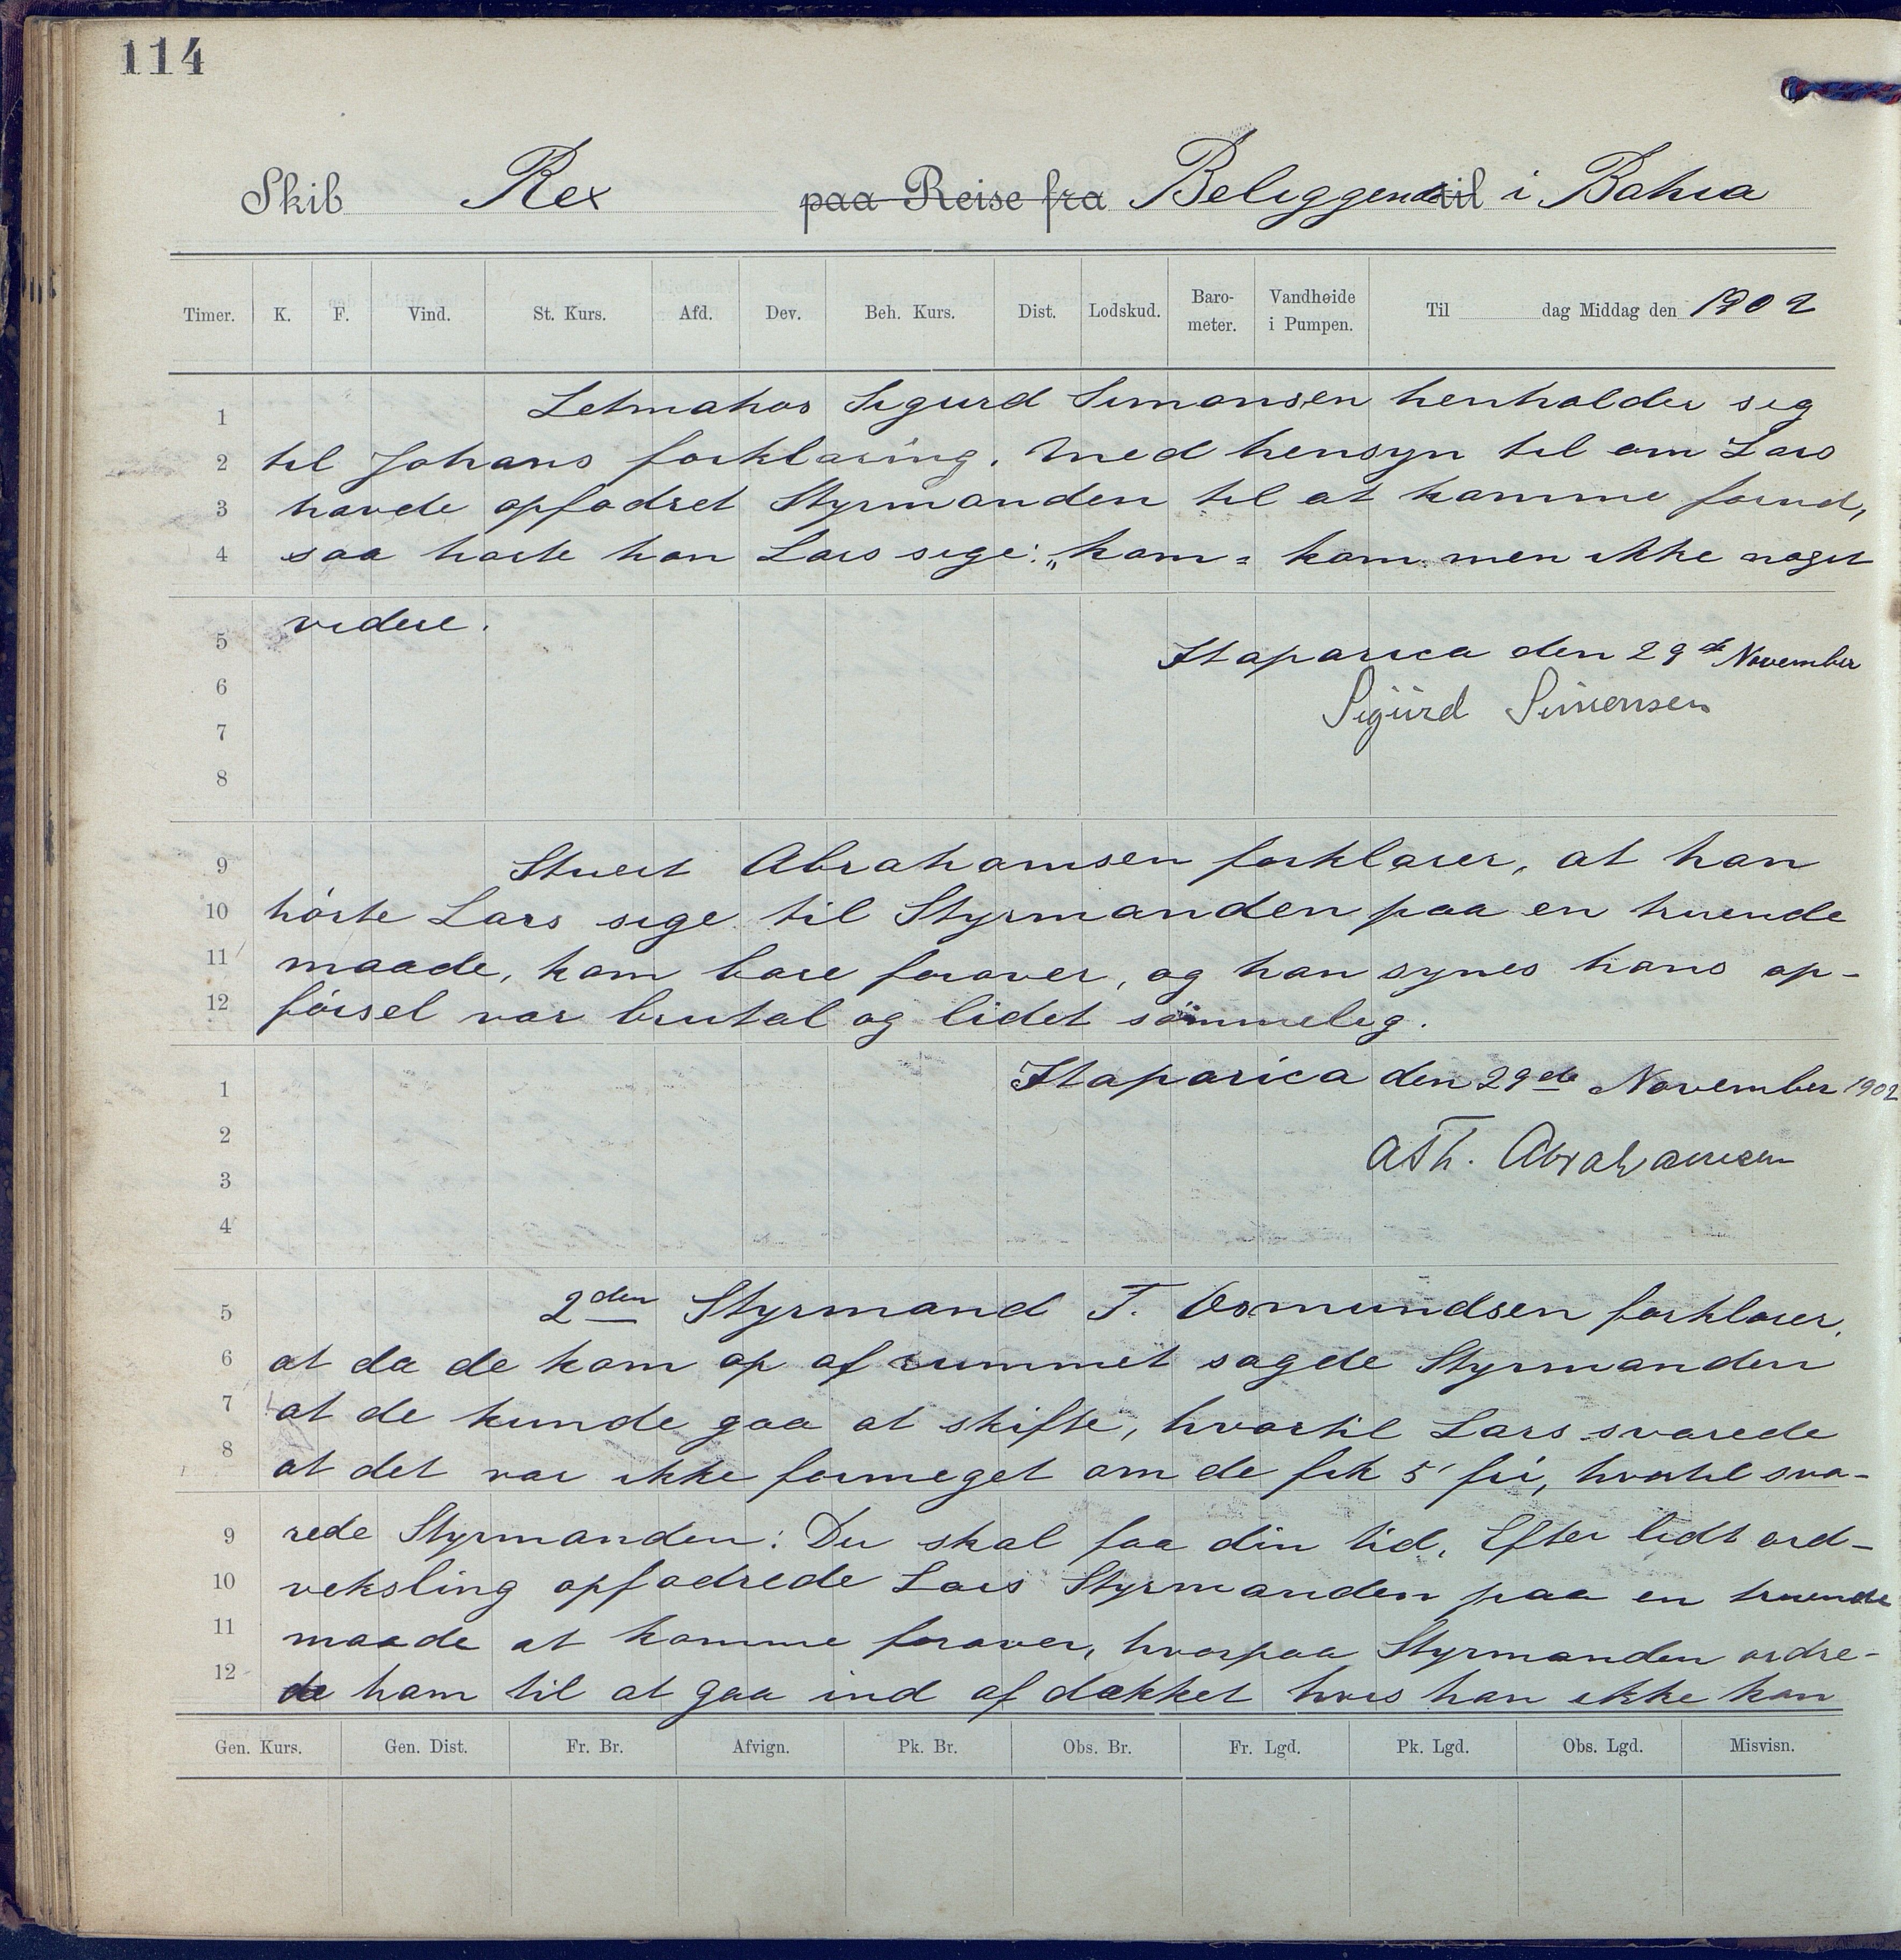 114
Skib Rex paa Reise fra Beliggende til i Bahia
Timer. K. F. Vind. St. Kurs. Afd. Dev. Beh. Kurs. Dist. Lodskud. Barometer. Vandhøide i Pumpen. Til dag Middag den 1902
1 Letmatros Sigurd Simonsen henholder sig
2 til Johans forklaring. Med hensyn til om Lars
3 havde opfodret Styrmanden til at komme forud,
4 saa hørte han Lars sige: „kom = kom. men ikke noget
5 videre.
Itaparica den 29de November
6 Sigurd Simensen
7
8
9 Stuert Abrahamsen forklarer, at han
10 hörte Lars sige til Styrmanden paa en truende
11 maade, kom bare forover, og han synes hans op-
12 försel var brutal og lidet sömmelig.
1 Itaparica den 29de November 1902
2 A Th. Abrahamsen
3
4
5 2den Styrmand T. Osmundsen forklarer,
6 at da de kom op af rummet sagde Styrmanden
7 at de kunde gaa at skifte, hvortil Lars svarede
8 at det var ikke formeget om de fik 5' fri, hvortil sva-
9 rede Styrmanden: Du skal faa din tid, Efter lidt ord-
10 veksling opfodrede Lars Styrmanden paa en truende
11 maade at komme forover, hvorpaa Styrmanden ordre-
12 de ham til at gaa ind af dækket hvis han ikke kan
Gen. Kurs. Gen. Dist. Fr. Br. Afvign. Pk. Br. Obs. Br. Fr. Lgd. Pk. Lgd. Obs. Lgd. Misvisn.